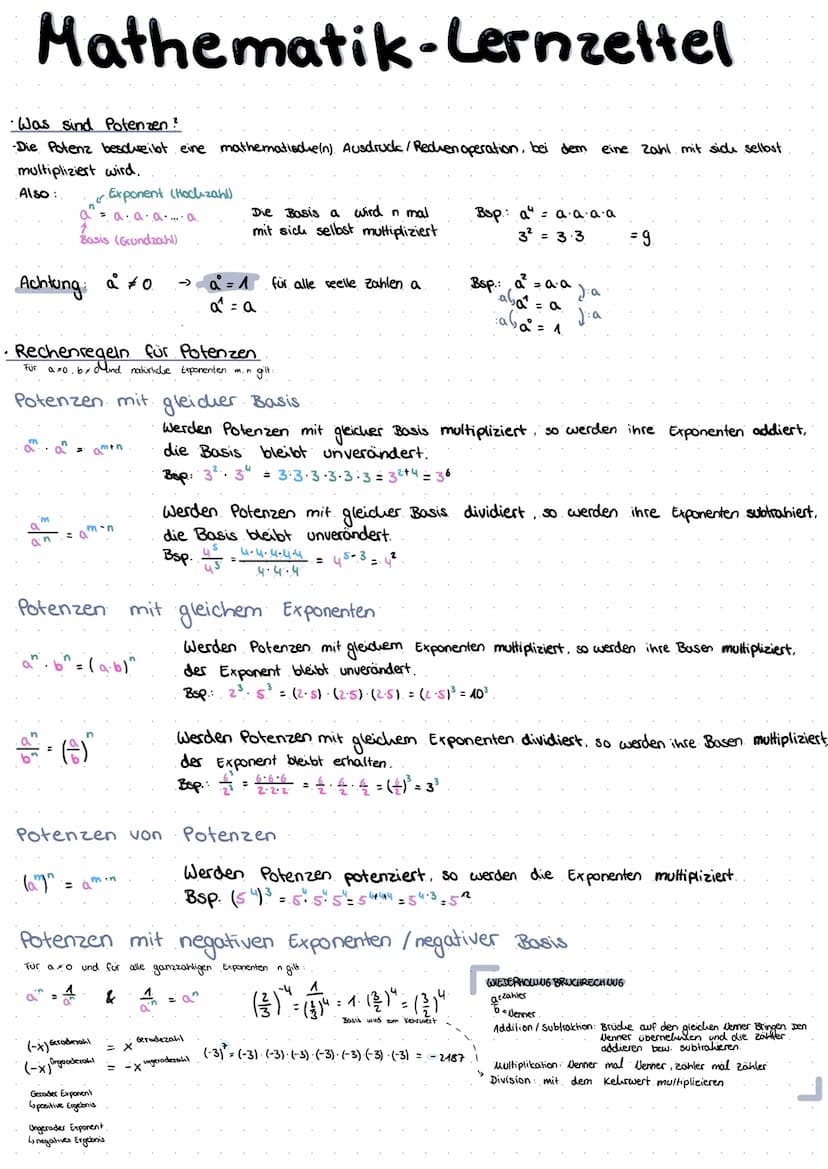 Mathematik-Lernzettel
· Was sind Potenzen?
-Die Potenz beschreibt eine mathematische(n) Ausdruck/Rechenoperation, bei dem eine Zahl mit sich selbst
multipliziert wird.
Also: Exponent (Hochzahl)
aⁿ = a·a·a·...·a Die Basis a wird n mal Bsp.: a⁴ = a·a·a·a
Basis (Grundzahl) mit sich selbst multipliziert 3² = 3·3 = 9
Achtung: a⁰ ≠ 0 → a⁰ = 1 für alle reelle Zahlen a Bsp.: a² = a·a
a¹ = a :a a¹ = a :a
:a a⁰ = 1 :a
· Rechenregeln für Potenzen
Für a≠0, b≠0 und natürliche Exponenten m,n gilt:
Potenzen mit gleicher Basis
Werden Potenzen mit gleicher Basis multipliziert, so werden ihre Exponenten addiert,
aᵐ · aⁿ = aᵐ⁺ⁿ die Basis bleibt unverändert.
Bsp: 3² · 3⁴ = 3·3·3·3·3·3 = 3²⁺⁴ = 3⁶
Werden Potenzen mit gleicher Basis dividiert, so werden ihre Exponenten subtrahiert,
aᵐ/aⁿ = aᵐ⁻ⁿ die Basis bleibt unverändert.
Bsp. 4⁵/4³ = 4·4·4·4·4/4·4·4 = 4⁵⁻³ = 4²
Potenzen mit gleichem Exponenten
Werden Potenzen mit gleichem Exponenten multipliziert, so werden ihre Basen multipliziert,
aⁿ · bⁿ = (a·b)ⁿ der Exponent bleibt unverändert.
Bsp.: 2³ · 5³ = (2·5) · (2·5) · (2·5) = (2·5)³ = 10³
Werden Potenzen mit gleichem Exponenten dividiert, so werden ihre Basen multipliziert,
aⁿ/bⁿ = (a/b)ⁿ der Exponent bleibt erhalten.
Bsp.: 6³/2³ = 6·6·6/2·2·2 = 6/2 · 6/2 · 6/2 = (6/2)³ = 3³
Potenzen von Potenzen
(aᵐ)ⁿ = aᵐ·ⁿ Werden Potenzen potenziert, so werden die Exponenten multipliziert.
Bsp. (5⁴)³ = 5⁴·5⁴·5⁴ = 5⁴⁺⁴⁺⁴ = 5⁴·³ = 5¹²
Potenzen mit negativen Exponenten/negativer Basis
Für a≠0 und für alle ganzzahligen Exponenten n gilt:
a⁻ⁿ = 1/aⁿ & 1/a⁻ⁿ = aⁿ (2/3)⁻⁴ = 1/(2/3)⁴ = 1·(3/2)⁴ = (3/2)⁴
Basis wird zum Kehrwert
(-x)^Gerade Zahl = x^Gerade Zahl
(-x)^Ungerade Zahl = -x^ungerade Zahl (-3)⁷ = (-3)·(-3)·(-3)·(-3)·(-3)·(-3)·(-3) = -2187
Gerader Exponent
↳positive Ergebnis
Ungerader Exponent
↳negatives Ergebnis
WIEDERHOLUNG BRUCHRECHNUNG
a←Zähler
b←Nenner
Addition/Subtraktion: Brüche auf den gleichen Nenner Bringen Den
Nenner übernehmen und die Zähler
addieren bzw. subtrahieren.
Multiplikation: Nenner mal Nenner, Zähler mal Zähler
Division: mit dem Kehrwert multiplizieren